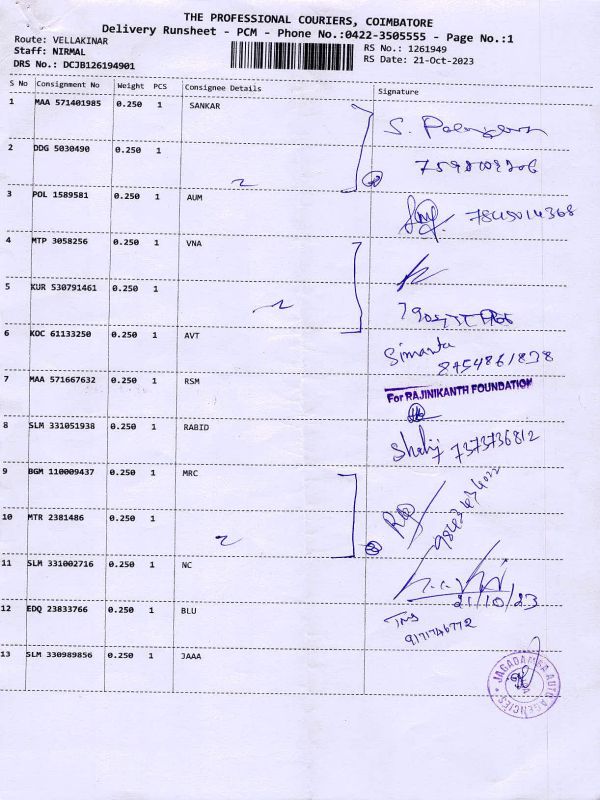 THE PROFESSIONAL COURIERS, COIMBATORE
Delivery Runsheet - PCM - Phone No.:0422-3505555 - Page No.:1
Route: VELLAKINAR
Staff: NIRMAL
DRS No.: DCJB126194901
RS No.: 1261949
RS Date: 21-Oct-2023
S No Consignment No Weight PCS Consignee Details Signature
1 MAA 571401985 0.250 1 SANKAR
2 DDG 5030490 0.250 1
3 POL 1589581 0.250 1 AUM
7845014368
4 MTP 3058256 0.250 1 VNA
5 KUR 530791461 0.250 1
6 KOC 61133250 0.250 1 AVT
Simanta
8754861838
7 MAA 571667632 0.250 1 RSM
For RAJINIKANTH FOUNDATION
8 SLM 331051938 0.250 1 RABID
7373736812
9 BGM 110009437 0.250 1 MRC
10 MTR 2381486 0.250 1
11 SLM 331002716 0.250 1 NC
21/10/23
12 EDQ 23833766 0.250 1 BLU
TMS
9171746772
13 SLM 330989856 0.250 1 JAAA
JAGADAMBA AUTO AGENCIES